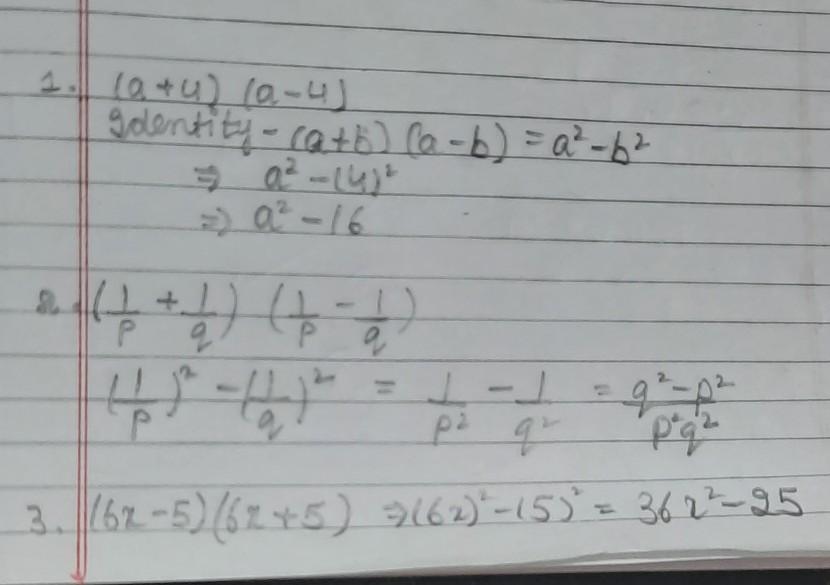 1. (a+4) (a-4)
Identity - (a+b) (a-b) = a² - b²
⇒ a² - (4)²
⇒ a² - 16
2. (1/p + 1/q) (1/p - 1/q)
(1/p)² - (1/q)² = 1/p² - 1/q² = q²-p²/p²q²
3. (6x-5)(6x+5) ⇒ (6x)² - (5)² = 36x² - 25